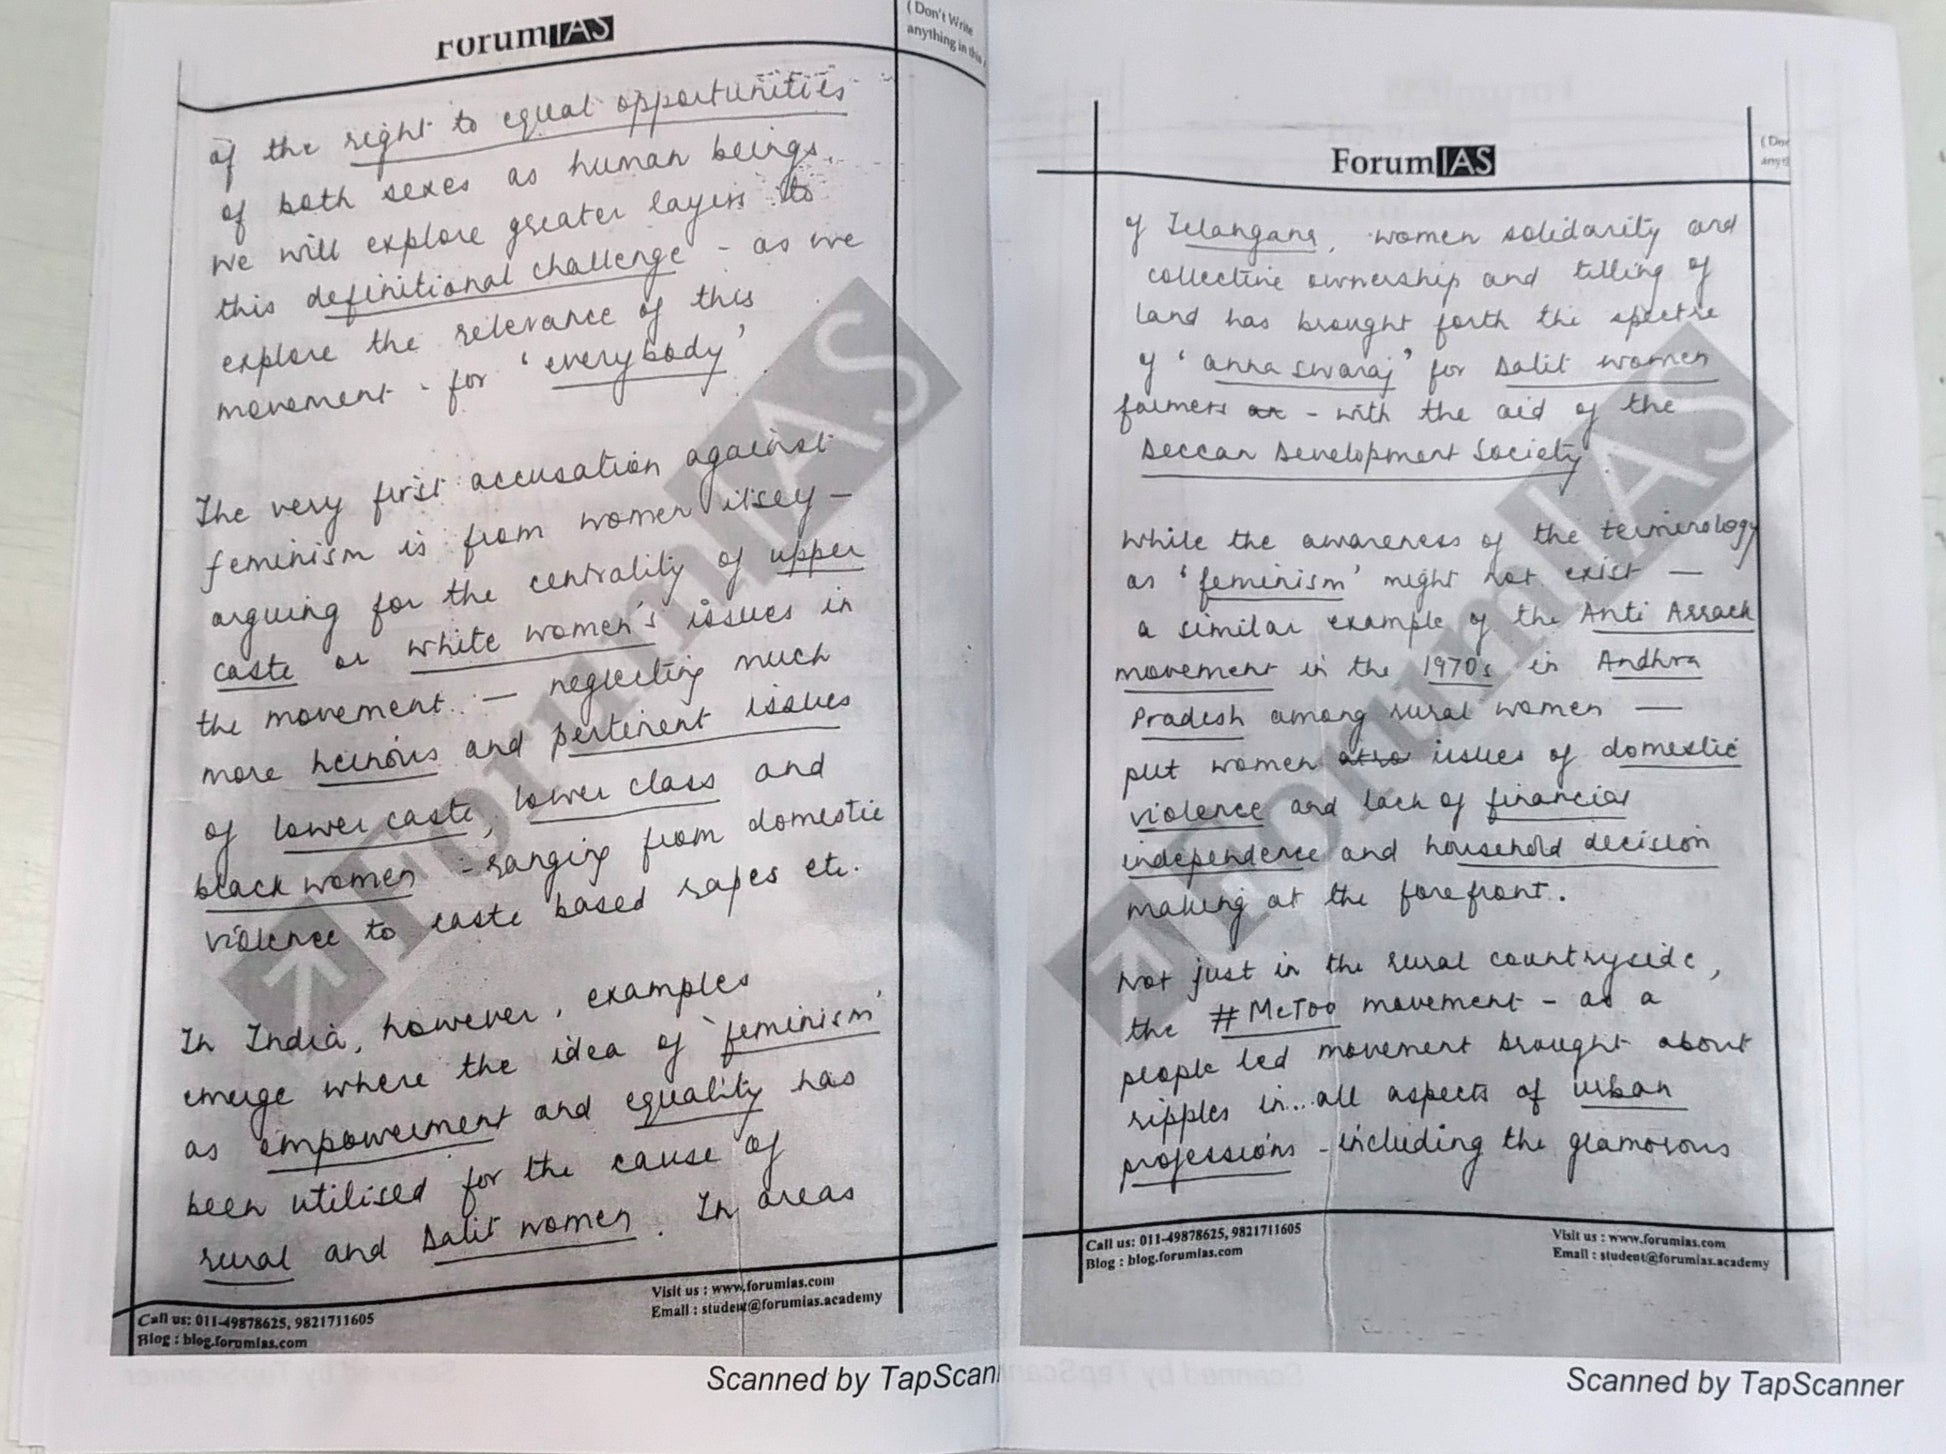 ForumIAS
( Don't Write
anything in this
of the right to equal opportunities
of both sexes as human beings.
we will explore greater layers to
this definitional challenge - as we
explore the relevance of this
movement - for 'everybody'
The very first accusation against
feminism is from women itself –
arguing for the centrality of upper
caste or white women's issues in
the movement. — neglecting much
more heinous and pertinent issues
of lower caste, lower class and
black women - ranging from domestic
violence to caste based rapes etc.
In India, however, examples
emerge where the idea of 'feminism'
as empowerment and equality has
been utilised for the cause of
rural and Dalit women. In areas
Call us: 011-49878625, 9821711605
Blog : blog.forumias.com
Visit us : www.forumias.com
Email : student@forumias.academy
Scanned by TapScan
ForumIAS
of Telangana, women solidarity and
collective ownership and tilling of
land has brought forth the spectre
of 'anna swaraj' for Dalit women
farmers - with the aid of the
Deccan Development Society.
While the awareness of the terminology
as 'feminism' might not exist —
a similar example of the Anti Arrack
movement in the 1970s in Andhra
Pradesh among rural women —
put women issues of domestic
violence and lack of financial
independence and household decision
making at the forefront.
Not just in the rural countryside,
the #MeToo movement - as a
people led movement brought about
ripples in... all aspects of urban
professions - including the glamorous
Call us: 011-49878625, 9821711605
Blog : blog.forumias.com
Visit us : www.forumias.com
Email : student@forumias.academy
Scanned by TapScanner